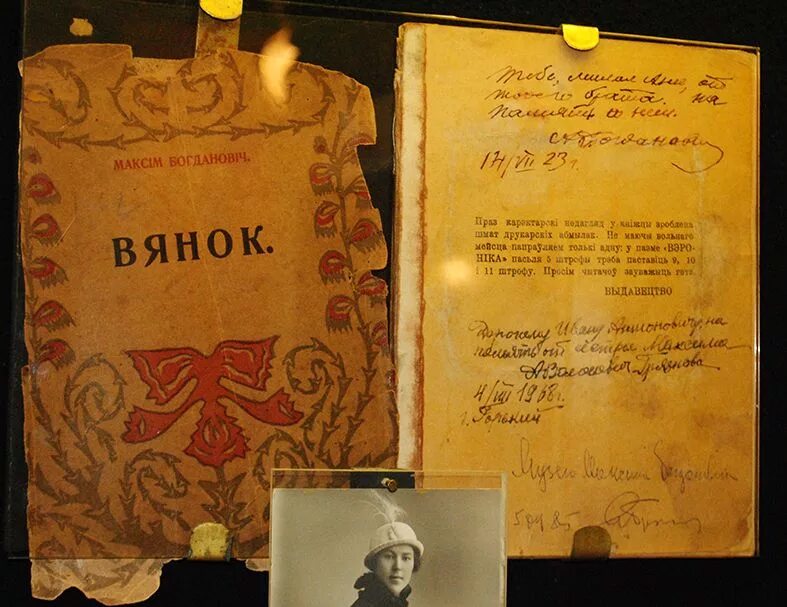 МАКСІМ БОГДАНОВІЧ.
ВЯНОК.
Тебе, милая Аня, от
твоего брата. на
память о нем.
АБогданович
17/VII 23 г.
Праз карэктарскі недагляд у кніжцы зроблена
шмат друкарскіх абмылак. Не маючы вольнаго
мейсца папраўляем толькі адну: у паэме «ВЭРО-
НІКА» пасьля 5 штрофы трэба паставіць 9, 10
і 11 штрофу. Просім читачоў зауважыць гэта
ВЫДАВЕЦТВО
Дорогому Ивану Антоновичу, на
память от сестры Максима
4/VIII 1968 г.
г. Горький
Музею Максіма Багдановіча